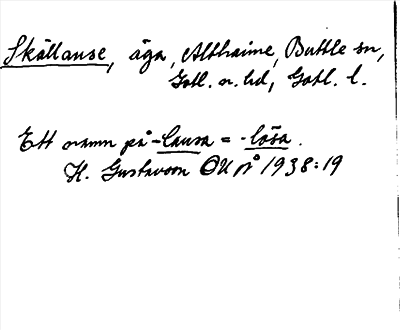 Skällause, äga, Althaime, Buttle sn,
Gotl. n. hd, Gotl. l.
Ett ornamn på -lausa = -lösa.
H. Gustavson OUÅ 1938:19